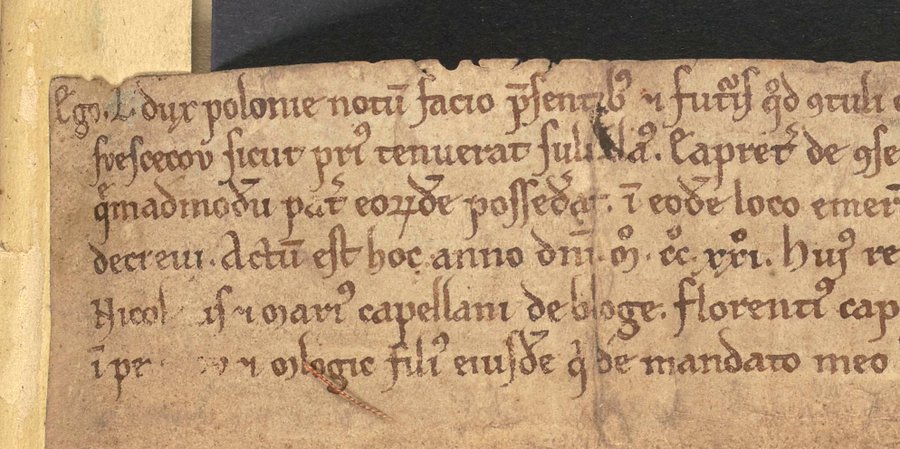 Ego. L. dux polonie notū facio p̄sentib⁹ ⁊ futuris qd̾ ꝯtuli
suescecov sicut pri⁹ tenuerat sul. Eapret̾ de ꝯse
qͣmadmodū pat̾ eorūdē possed̾at. ī eodē loco emer
decrevi. Actū est hoc anno dnī. mͦ. ccͦ. xxͦi. Hui⁹ re
Nicol is ⁊ mari⁹ capellani de bloge. florenti⁹ cap
ī pe ⁊ mlogic fili⁹ eiusdē qͥ de mandato meo